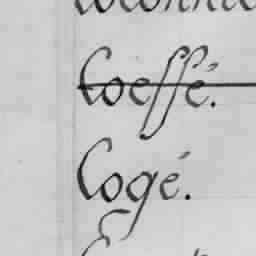 Coeffé.
Cogé.